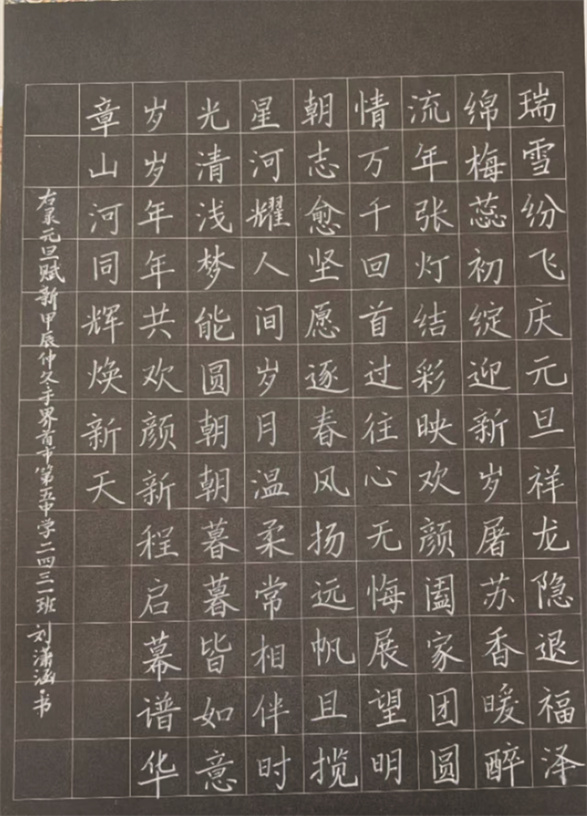 瑞雪纷飞庆元旦祥龙隐退福泽
绵梅蕊初绽迎新岁屠苏香暖醉
流年张灯结彩映欢颜阖家团圆
情万千回首过往心无悔展望明
朝志愈坚愿逐春风扬远帆且揽
星河耀人间岁月温柔常相伴时
光清浅梦能圆朝朝暮暮皆如意
岁岁年年共欢颜新程启幕谱华
章山河同辉焕新天
右录元旦赋新甲辰仲冬于界首市第五中学二四三一班 刘潇涵书